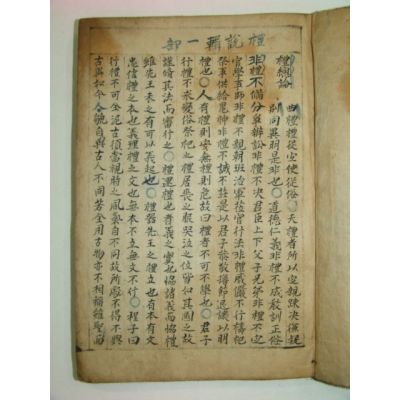 禮說輯一部
禮總論
曲禮禮從宜使從俗〇夫禮者所以定親踈決嫌疑
別同異明是非也〇道德仁義非禮不成敎訓正俗
非禮不備分爭辨訟非禮不決君臣上下父子兄弟非禮不定
宦學事師非禮不親班朝治軍莅官行法非禮威嚴不行禱祠
祭事供給鬼神非禮不誠不莊是以君子恭敬撙節退讓以明
禮也〇人有禮則安無禮則危故曰禮者不可不學也〇君子
行禮不求變俗祭祀之禮居喪之服哭泣之位皆如其國之故
謹脩其法而審行之〇禮運禮也者義之實也協諸義而協禮
雖先王未之有可以義起也〇禮器先王之禮立也有本有文
忠信禮之本也義理禮之文也無本不立無文不行〇程子曰
行禮不可全泥古須當視時之風氣自不同故所處不得不與
古異如今人貌自與古人不同若全用古物亦不相稱雖聖